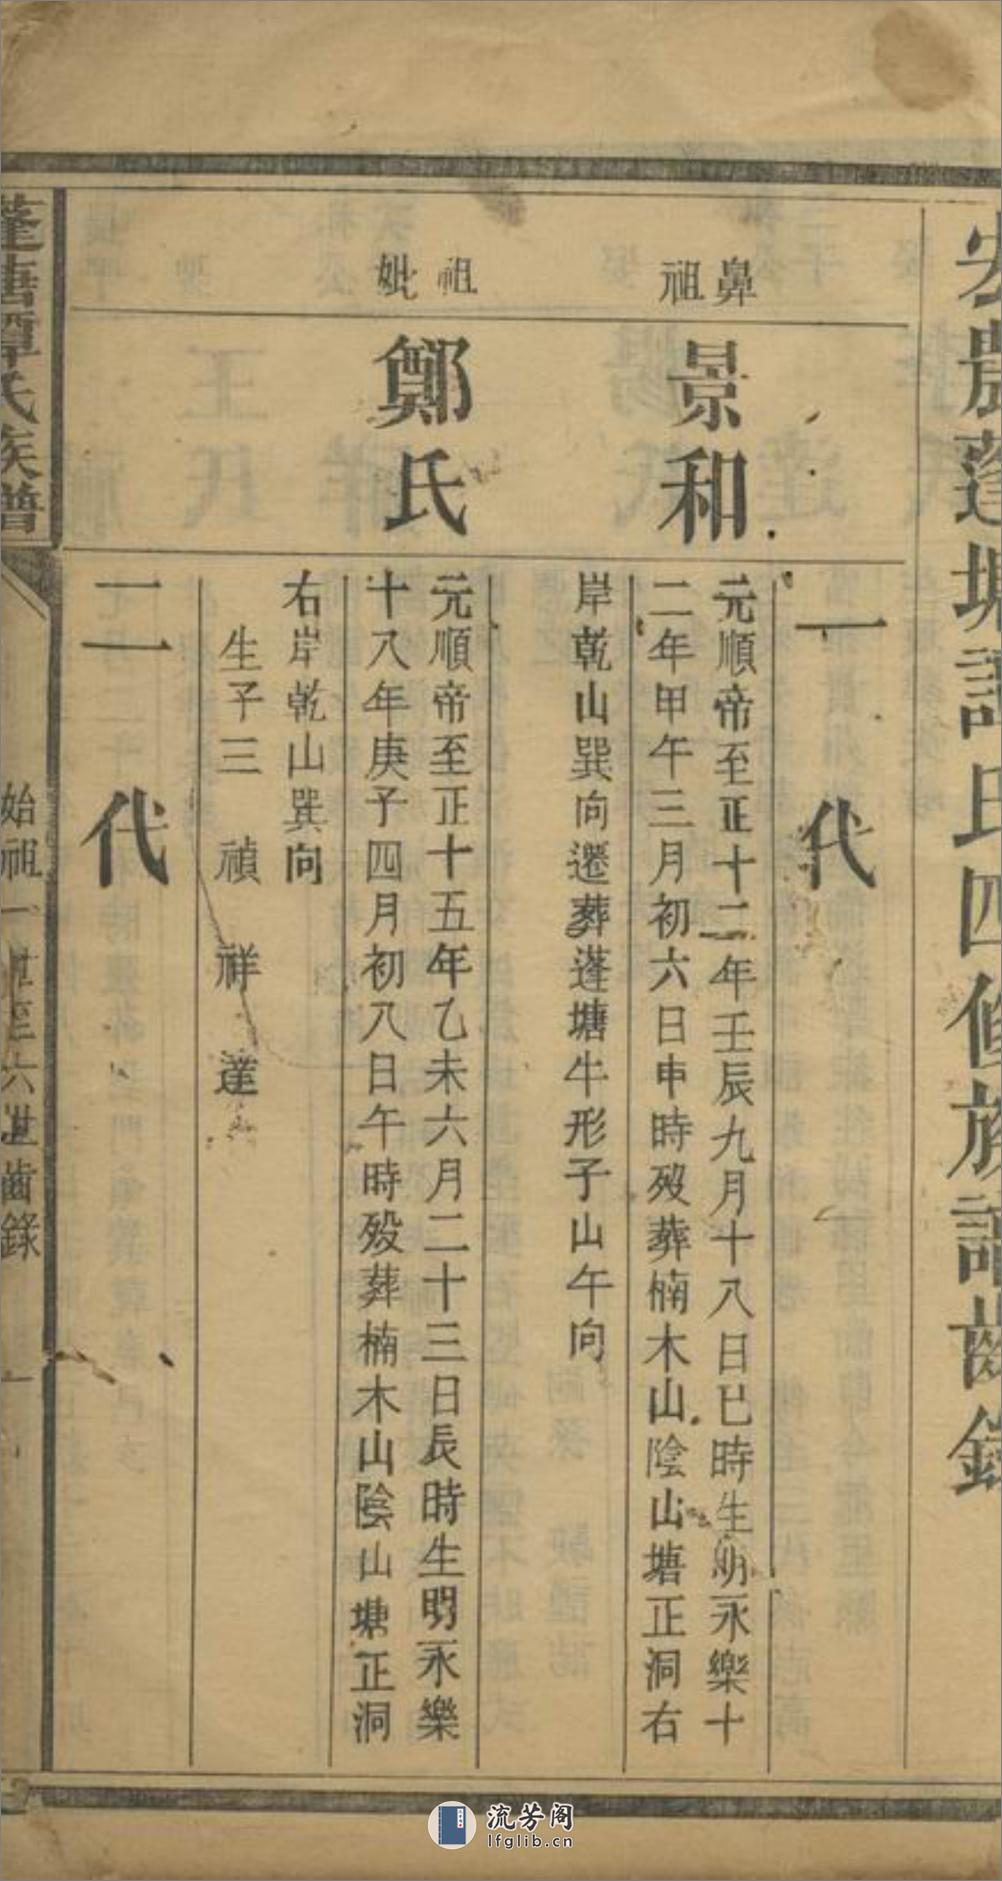 宏農蓬塘譚氏四修族譜齒錄
一代
鼻祖
景和
元順帝至正十二年壬辰九月十八日巳時生明永樂十
二年甲午三月初六日申時歿葬楠木山陰山塘正洞右
岸乾山巽向遷葬蓬塘牛形子山午向
祖妣
鄭氏
元順帝至正十五年乙未六月二十三日辰時生明永樂
十八年庚子四月初八日午時歿葬楠木山陰山塘正洞
右岸乾山巽向
生子三 禎 祥 達
二代
蓬塘譚氏族譜
始祖一世至六世齒錄
一
流芳阁
lfglib.cn